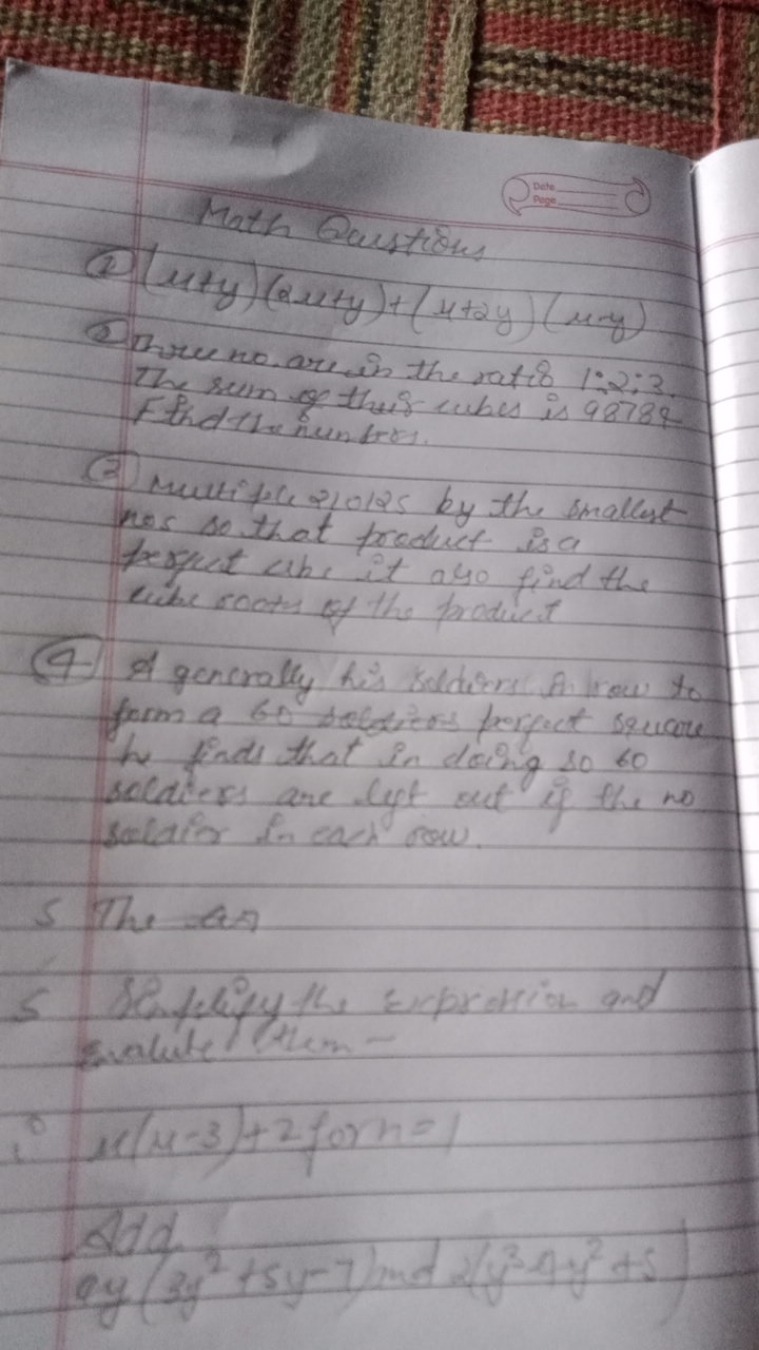 Date
Page
Math Qaustions
① (x+y)(2x+y)+(x+2y)(x-y)
② Three no. are in the ratio 1:2:3.
The sum of their cubes is 98784
Find the numbers.
③ Multiple 210125 by the smallest
nos so that product is a
perfect cube it also find the
cube roots of the product
④ A generally his soldiers A row to
form a 60 soldiers perfect square
he finds that in doing so 60
soldiers are left out if the no
soldier in each row.
5 The
5 Simplify the expression and
evalute them -
i x(x-3)+2 for x=1
Add
4y(3y²+5y-7) and 2(y³-4y²+5)